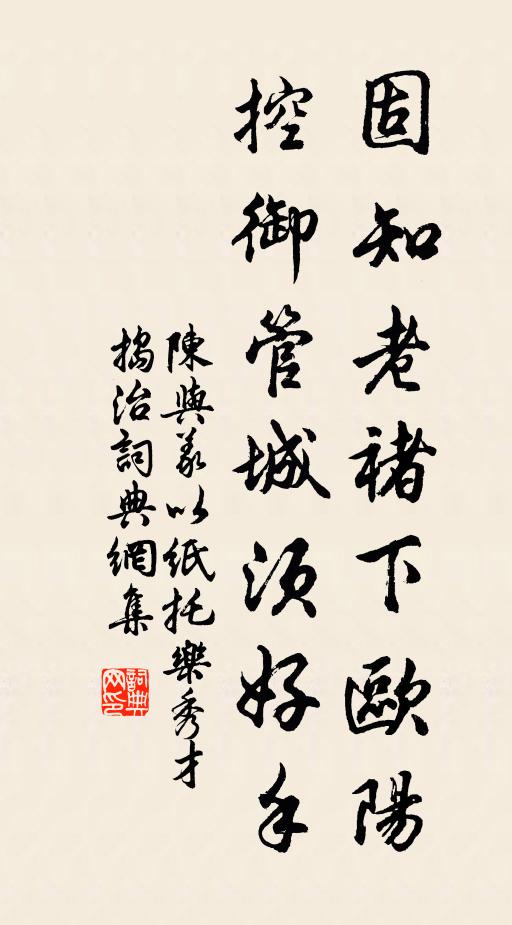 固知老褚下歐陽
控御管城須好手
陳與義以紙托樂秀才
搗治詞典網集
詞典網印